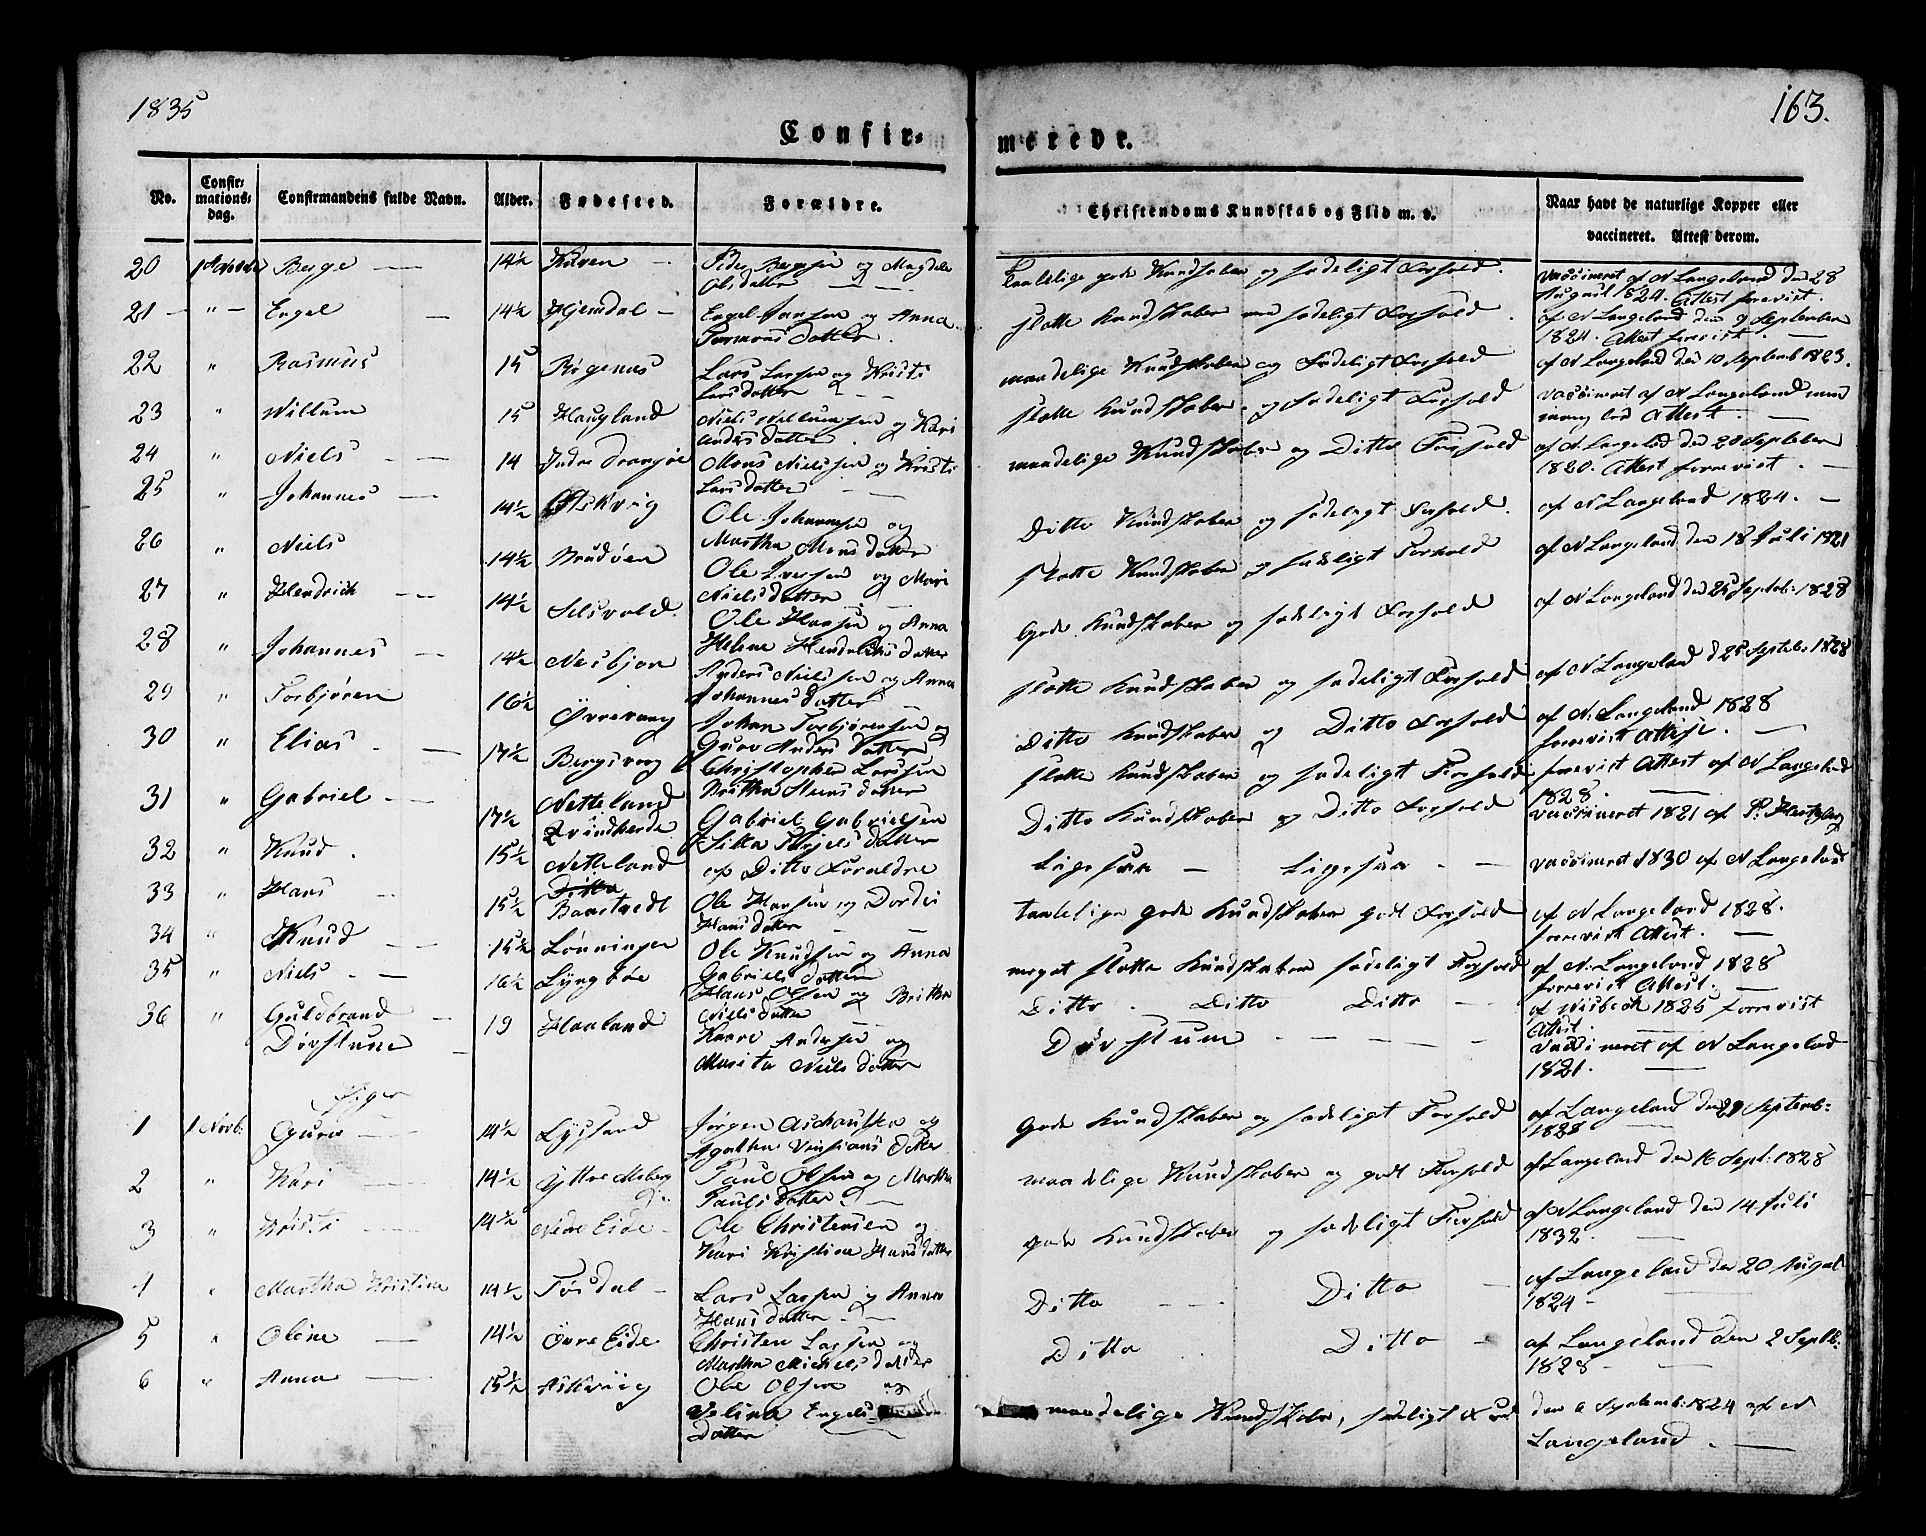 1835
163.
Confir-
merede.
No.
Confir-
mations-
dag.
Confirmandens fulde Navn.
Alder.
Fødested.
Forældre.
Christendoms Kundskab og Flid m. v.
Naar havt de naturlige Kopper eller
vaccineret. Attest derom.
20 1 Novbr Berge 14½ og Magdela
Olsdatter
Taalelige gode Kundskaber og sædeligt Forhold.
vaccineret af N Langeland den 28
August 1824. Attest forevist.
21 " Engel 14½ Hjemdal Engel Jansen og Anna
Datter.
slette Kundskaber med sædeligt Forhold.
af N Langeland den 9 September
1824. Attest forevist.
22 " Rasmus 15 Røgenæs Lars Larsen og Kristi
Larsdatter
maadelige Kundskaber og Sædeligt Forhold
af N Langeland den 10 Septemb 1823.
23 " Willum 15 Haugland Niels Willumsen og Kari
Andersdatter.
slette Kundskaber og Sædeligt Forhold
vaccineret af N Langeland men
Attest.
24 " Niels 14 Indre Mons Nielssen og Kristi
Larsdatter
maadelige Kundskaber og Ditto Forhold
af N. Langelad den 20 September
1820. Attest forevist.
25 " Johannes 14½ Askvig Ole Johannesen og
Martha Mons datter
Ditto Kundskaber og sædeligt Forhold.
af N Langeland 1824.
26 " Niels 14½ Brudøen Ole Iversen og Mari
Nielsdatter
slette Kundskaber og sædeligt Forhold
af N Langeland den 18 Juli 1821
27 " Hendrich 14½ Selsvold Ole Hansen og Anna
Helene Hendrichs datter
Gode Kundskaber og sædeligt Forhold
af N Langeland den 25 Septeb: 1828
28 " Johannes 14½ Nesbjon Anders Nielssen og Anna
Johannes datter
slette Kundskaber og sædeligt Forhold
af N Langeland d 25 Septeb: 1828
29 " Torbjøren 16½ Øvrevaag Johan Torbjørensen og
Guro Anders datter
Ditto Kundskaber og Ditto Forhold
af N. Langeland 1828
forevist Attest.
30 " Elias 17½ Bergsvog Christopher Larsen
Britha Steens datter
slette Kundskaber og sædeligt Forhold
forevist Attest af N Langelad
1828.
31 " Gabriel 17½ Netteland
Qvindherde Gabriel Gabrielsen
Silla datter
Ditto Kundskaber og Ditto Forhold
vaccineret 1821 af P. Hertzberg
32 " Knud 15½ Netteland
Ditto af Ditto Foraldre
Ligesaa Ligesaa
vaccineret 1830 af N Langeland
33 " Hans 15½ Baastvedt Ole Hansen og Dordei
Hansdatter
taalelige gode Kundskaber godt Forhold
af N Langeland 1828.
forevist Attest.
34 " Knud 15½ Lønningen Ole Knudsen og Anna
Gabriels datter
meget slette Kundskaber sædeligt Forhold
af N: Langeland 1828
forevist Attest.
35 " Niels 16½ Lyngbøe Hans Olsen og Britha
Niels datter
Ditto Ditto Ditto
af Nisbeth 1825 forevist
Attest.
36 " Guldbrand
Døvstume 19 Haaland Kaare Andersen og
Marita Niels datter
Døvstum
Vaccineret af N Langelad
1821.
Piger
1 1 Novb: Guro 14½ Lysland Jørgen og
Agatha datter
gode Kundskaber og sædeligt Forhold
af Langeland den 29 Septemb:
1828
2 " Kari 14½ Yttre Moberg Paul Olsen og Martha
Pauls datter
maadelige Kundskaber og godt Forhold
af Langeland den 16 Sept: 1828
3 " Kristi 14½ Nedre Eide Ole Christensen og
Kari Kristine Hansdatter
gode Kundskaber og sædeligt Forhold
af N Langeland den 14 Juli
1832.
4 " Martha Kristina 14½ Tøsdal Lars Larsen og Anna
Hans datter
Ditto Ditto
af Langeland den 20 August
1824
5 " Oline 14½ Øvre Eide Christen Larsen og
Martha Michelsdatter
Ditto Ditto
af Langeland den 2 Septb:
1828
6 " Anna 15½ Askvig Ole Olsen og
Selina Engels
Datter
maadelige Kundskab, sædeligt
den 6 Septemb: 1824 af N
Langeland.